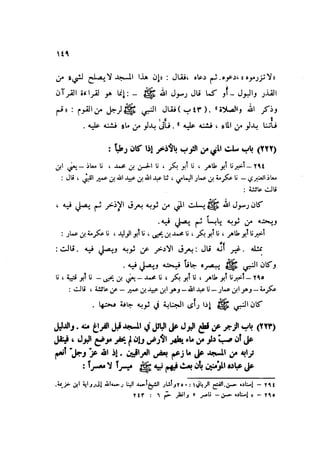 ١٤٩
«لا تزرموه، دعوه». ثم دعاه، فقال: «إن هذا المسجد لا يصلح لشيء من
القذر والبول – أو كما قال رسول الله ﷺ – : إنما هو لقراءة القرآن
وذكر الله والصلاة». (٤٣ ب) فقال النبي ﷺ لرجل من القوم: «قم
فأتنا بدلو من الماء، فشنه عليه». فأتى بدلو من ماء فشنه عليه.
(٢٢٢) باب سلت المني من الثوب بالأذخر إذا كان رطباً:
٢٩٤ – أخبرنا أبو طاهر ، نا أبو بكر ، نا الحسن بن محمد ، نا معاذ – يعني ابن
معاذ العنبري – نا عكرمة بن عمار اليمامي ، ثنا عبد الله بن عبيد بن عمير الليثي ، قال :
قالت عائشة
كان رسول الله ﷺ يسلت المني من ثوبه بعرق الإذخر ثم يصلي فيه ،
ويحته من ثوبه يابساً ثم يصلي فيه.
أخبرنا أبو طاهر ، نا أبو بكر ، نا محمد بن يحيى ، نا أبو الوليد ، نا عكرمة بن عمار :
بمثله . غير أنه قال : بعرق الاذخر عن ثوبه ويصلي فيه . قالت :
وكان النبي ﷺ يبصره جافاً فيحته ويصلي فيه .
٢٩٥ – أخبرنا أبو طاهر ، نا أبو بكر ، نا محمد – يعني بن يحيى – نا أبو قتيبة ، نا
عكرمة – وهو ابن عمار – نا عبد الله – وهو ابن عبيد بن عمير – عن عائشة ، قالت :
كان النبي ﷺ إذا رأى الجنابة في ثوبه جافة فحتها .
(٢٢٣) باب الزجر عن قطع البول على البائل في المسجد قبل الفراغ منه . والدليل
على أن صب دلو من ماء يطهر الأرض وإن لم يحفر موضع البول ، فينقل
ترابه من المسجد على ما زعم بعض العراقيين . إذ الله عزّ وجلّ أنعم
على عباده المؤمنين بأن بعث فيهم نبيه ﷺ ميسراً لا معسراً :
٢٩٤ – إسناده حسن. الفتح الرباني ١ : ٢٥٠ وأشار الشيخ أحمد البنا رحمه الله إلى رواية ابن خزيمة.
٢٩٥ – إسناده حسن – ناصر » وانظر حم ٦ : ٢٤٣